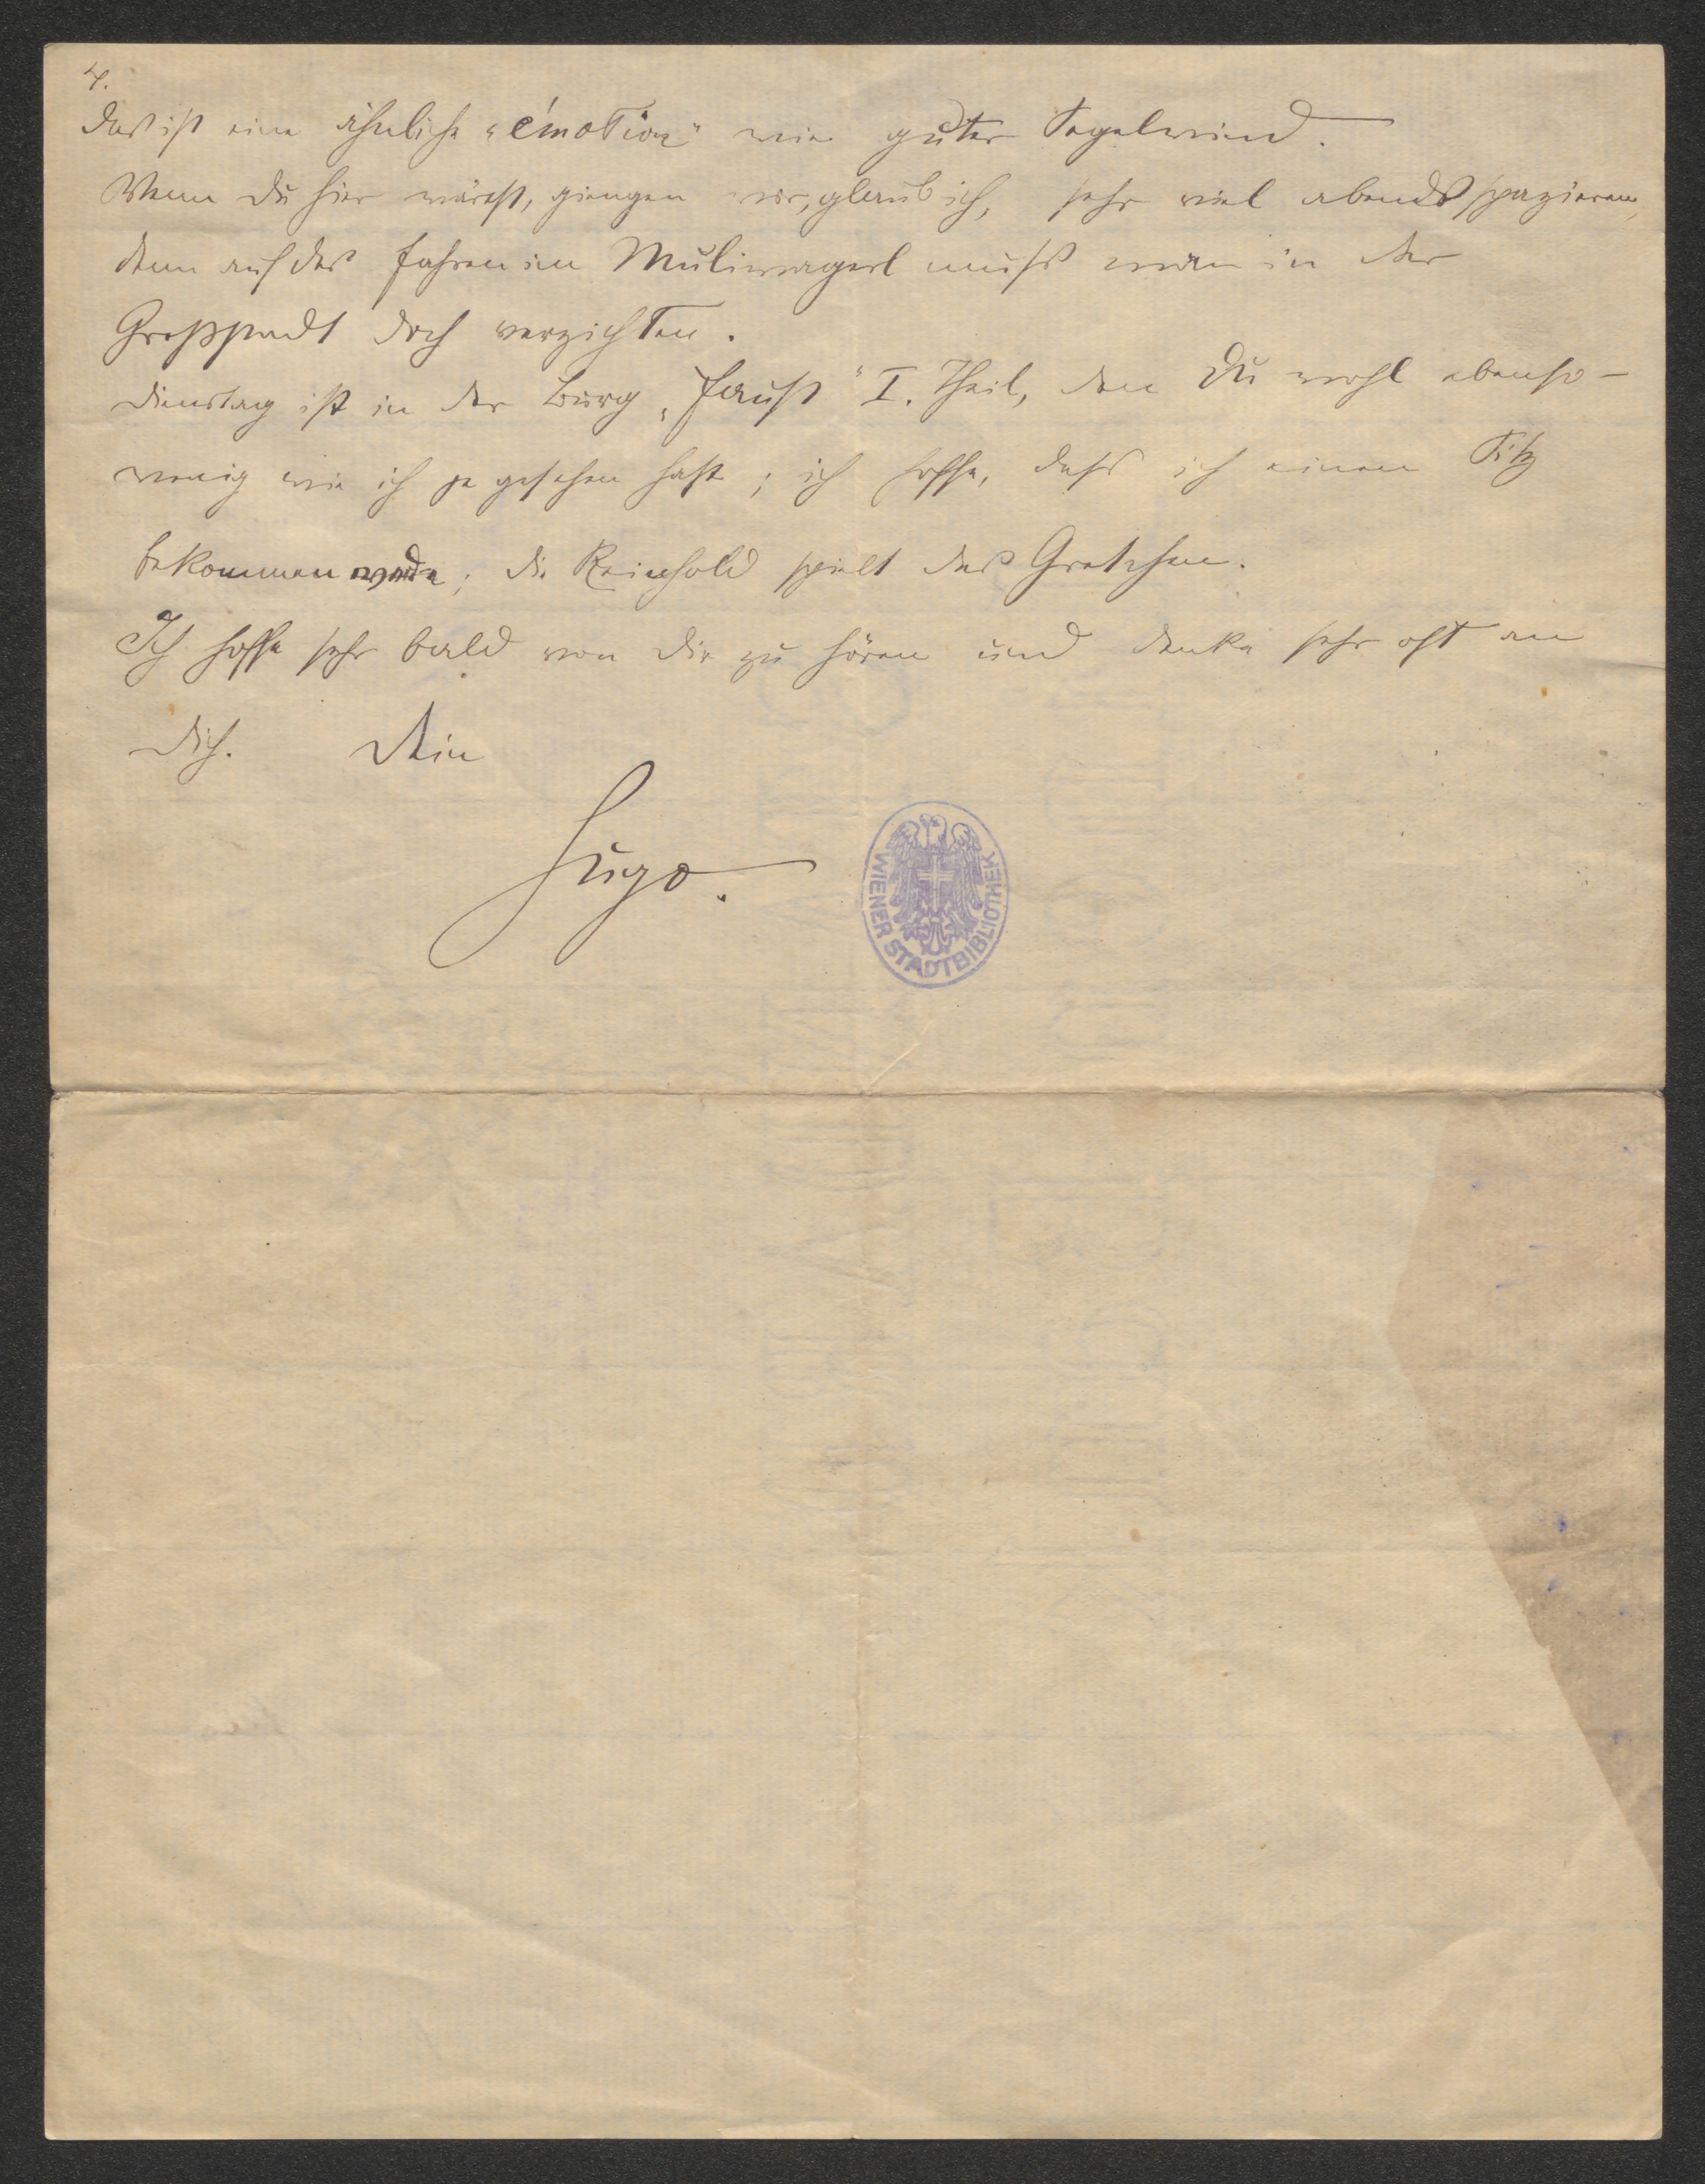 4.
Das ist eine ähnliche „émotion“ wie guter Segelwind.
Wenn Du hier wärest, giengen wir, glaub ich, sehr viel abends spazieren,
denn auf das Fahren im Muliwagerl muß man in der
Großstadt doch verzichten.
Dienstag ist in der Burg „Faust“ I. Theil, den Du wohl ebenso-
wenig wie ich je gesehen hast; ich hoffe, dass ich einen Sitz
bekommen werde; die Reinhold spielt das Gretchen.
Ich hoffe sehr bald von Dir zu hören und denke sehr oft an
Dich. Dein
Hugo.
WIENER STADTBIBLIOTHEK